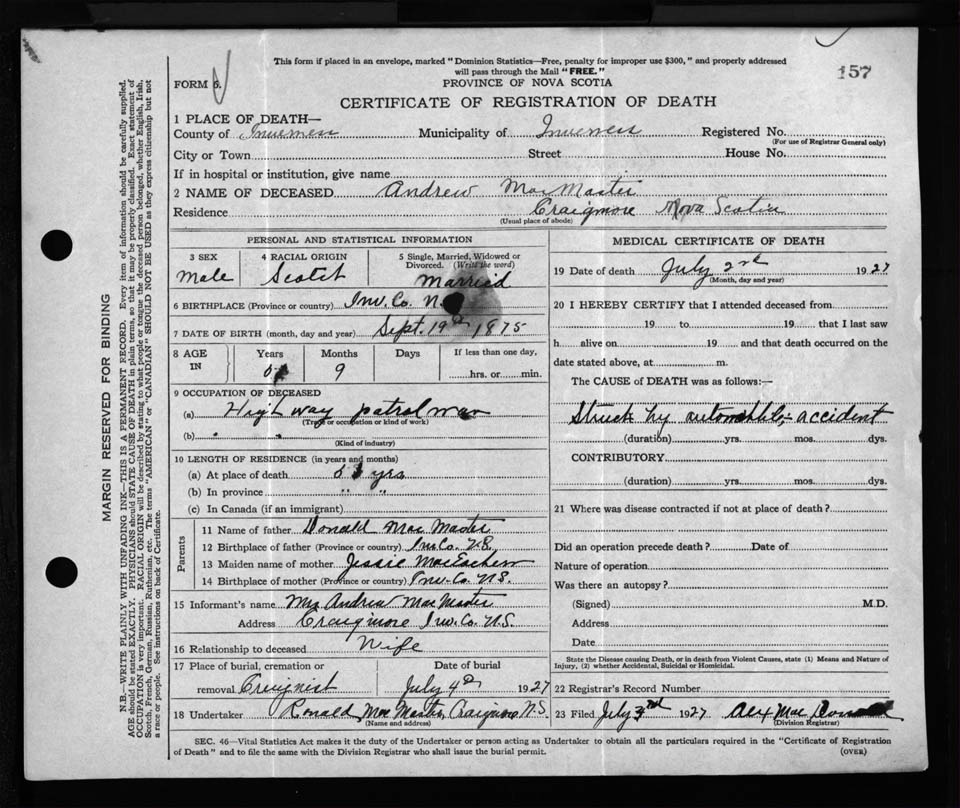 This form if placed in an envelope, marked "Dominion Statistics—Free, penalty for improper use $300," and properly addressed
will pass through the Mail "FREE."
157
FORM 6.
PROVINCE OF NOVA SCOTIA
CERTIFICATE OF REGISTRATION OF DEATH
1 PLACE OF DEATH—
County of Inverness Municipality of Inverness Registered No.
(For use of Registrar General only)
City or Town Street House No.
If in hospital or institution, give name
2 NAME OF DECEASED Andrew MacMaster
Residence Craigmore Nova Scotia
(Usual place of abode)
MARGIN RESERVED FOR BINDING
N.B.—WRITE PLAINLY WITH UNFADING INK—THIS IS A PERMANENT RECORD. Every item of information should be carefully supplied.
AGE should be stated EXACTLY. PHYSICIANS should STATE CAUSE OF DEATH in plain terms, so that it may be properly classified. Exact statement of
OCCUPATION is very important. RACIAL ORIGIN will be described by stating to what people or tongue the deceased person belonged, whether English, Irish,
Scotch, French, German, Russian, Ruthenian, etc. The terms "AMERICAN" or "CANADIAN" SHOULD NOT BE USED as they express citizenship but not
a race or people. See instructions on back of Certificate.
PERSONAL AND STATISTICAL INFORMATION
3 SEX
Male
4 RACIAL ORIGIN
Scotch
5 Single, Married, Widowed or
Divorced. (Write the word)
Married
6 BIRTHPLACE (Province or country) Inv. Co. N.
7 DATE OF BIRTH (month, day and year) Sept. 19th 1875
8 AGE
IN
Years
Months
9
Days
If less than one day,
hrs. or min.
9 OCCUPATION OF DECEASED
(a) Highway patrolman
(Trade or occupation or kind of work)
(b)
(Kind of industry)
10 LENGTH OF RESIDENCE (in years and months)
(a) At place of death yrs
(b) In province " "
(c) In Canada (if an immigrant)
Parents
11 Name of father Donald MacMaster
12 Birthplace of father (Province or country) Inv. Co. N.S.
13 Maiden name of mother Jessie MacEachern
14 Birthplace of mother (Province or country) Inv. Co. N.S.
15 Informant's name Mrs Andrew MacMaster
Address Craigmore Inv. Co. N.S.
16 Relationship to deceased Wife
17 Place of burial, cremation or Date of burial
removal Creignish July 4th 1927
18 Undertaker Ronald MacMaster, Craigmore N.S.
(Name and address)
MEDICAL CERTIFICATE OF DEATH
19 Date of death July 2nd 1927
(Month, day and year)
20 I HEREBY CERTIFY that I attended deceased from
19 to 19 that I last saw
h alive on 19 and that death occurred on the
date stated above, at m.
The CAUSE of DEATH was as follows:—
Struck by automobile,- accident
(duration) yrs. mos. dys.
CONTRIBUTORY
(duration) yrs. mos. dys.
21 Where was disease contracted if not at place of death?
Did an operation precede death? Date of
Nature of operation
Was there an autopsy?
(Signed) M.D.
Address
Date
State the Disease causing Death, or in death from Violent Causes, state (1) Means and Nature of
Injury, (2) whether Accidental, Suicidal or Homicidal.
22 Registrar's Record Number
23 Filed July 3rd 1927 Alex MacDonald
(Division Registrar)
SEC. 46—Vital Statistics Act makes it the duty of the Undertaker or person acting as Undertaker to obtain all the particulars required in the "Certificate of Registration
of Death" and to file the same with the Division Registrar who shall issue the burial permit.
(OVER)